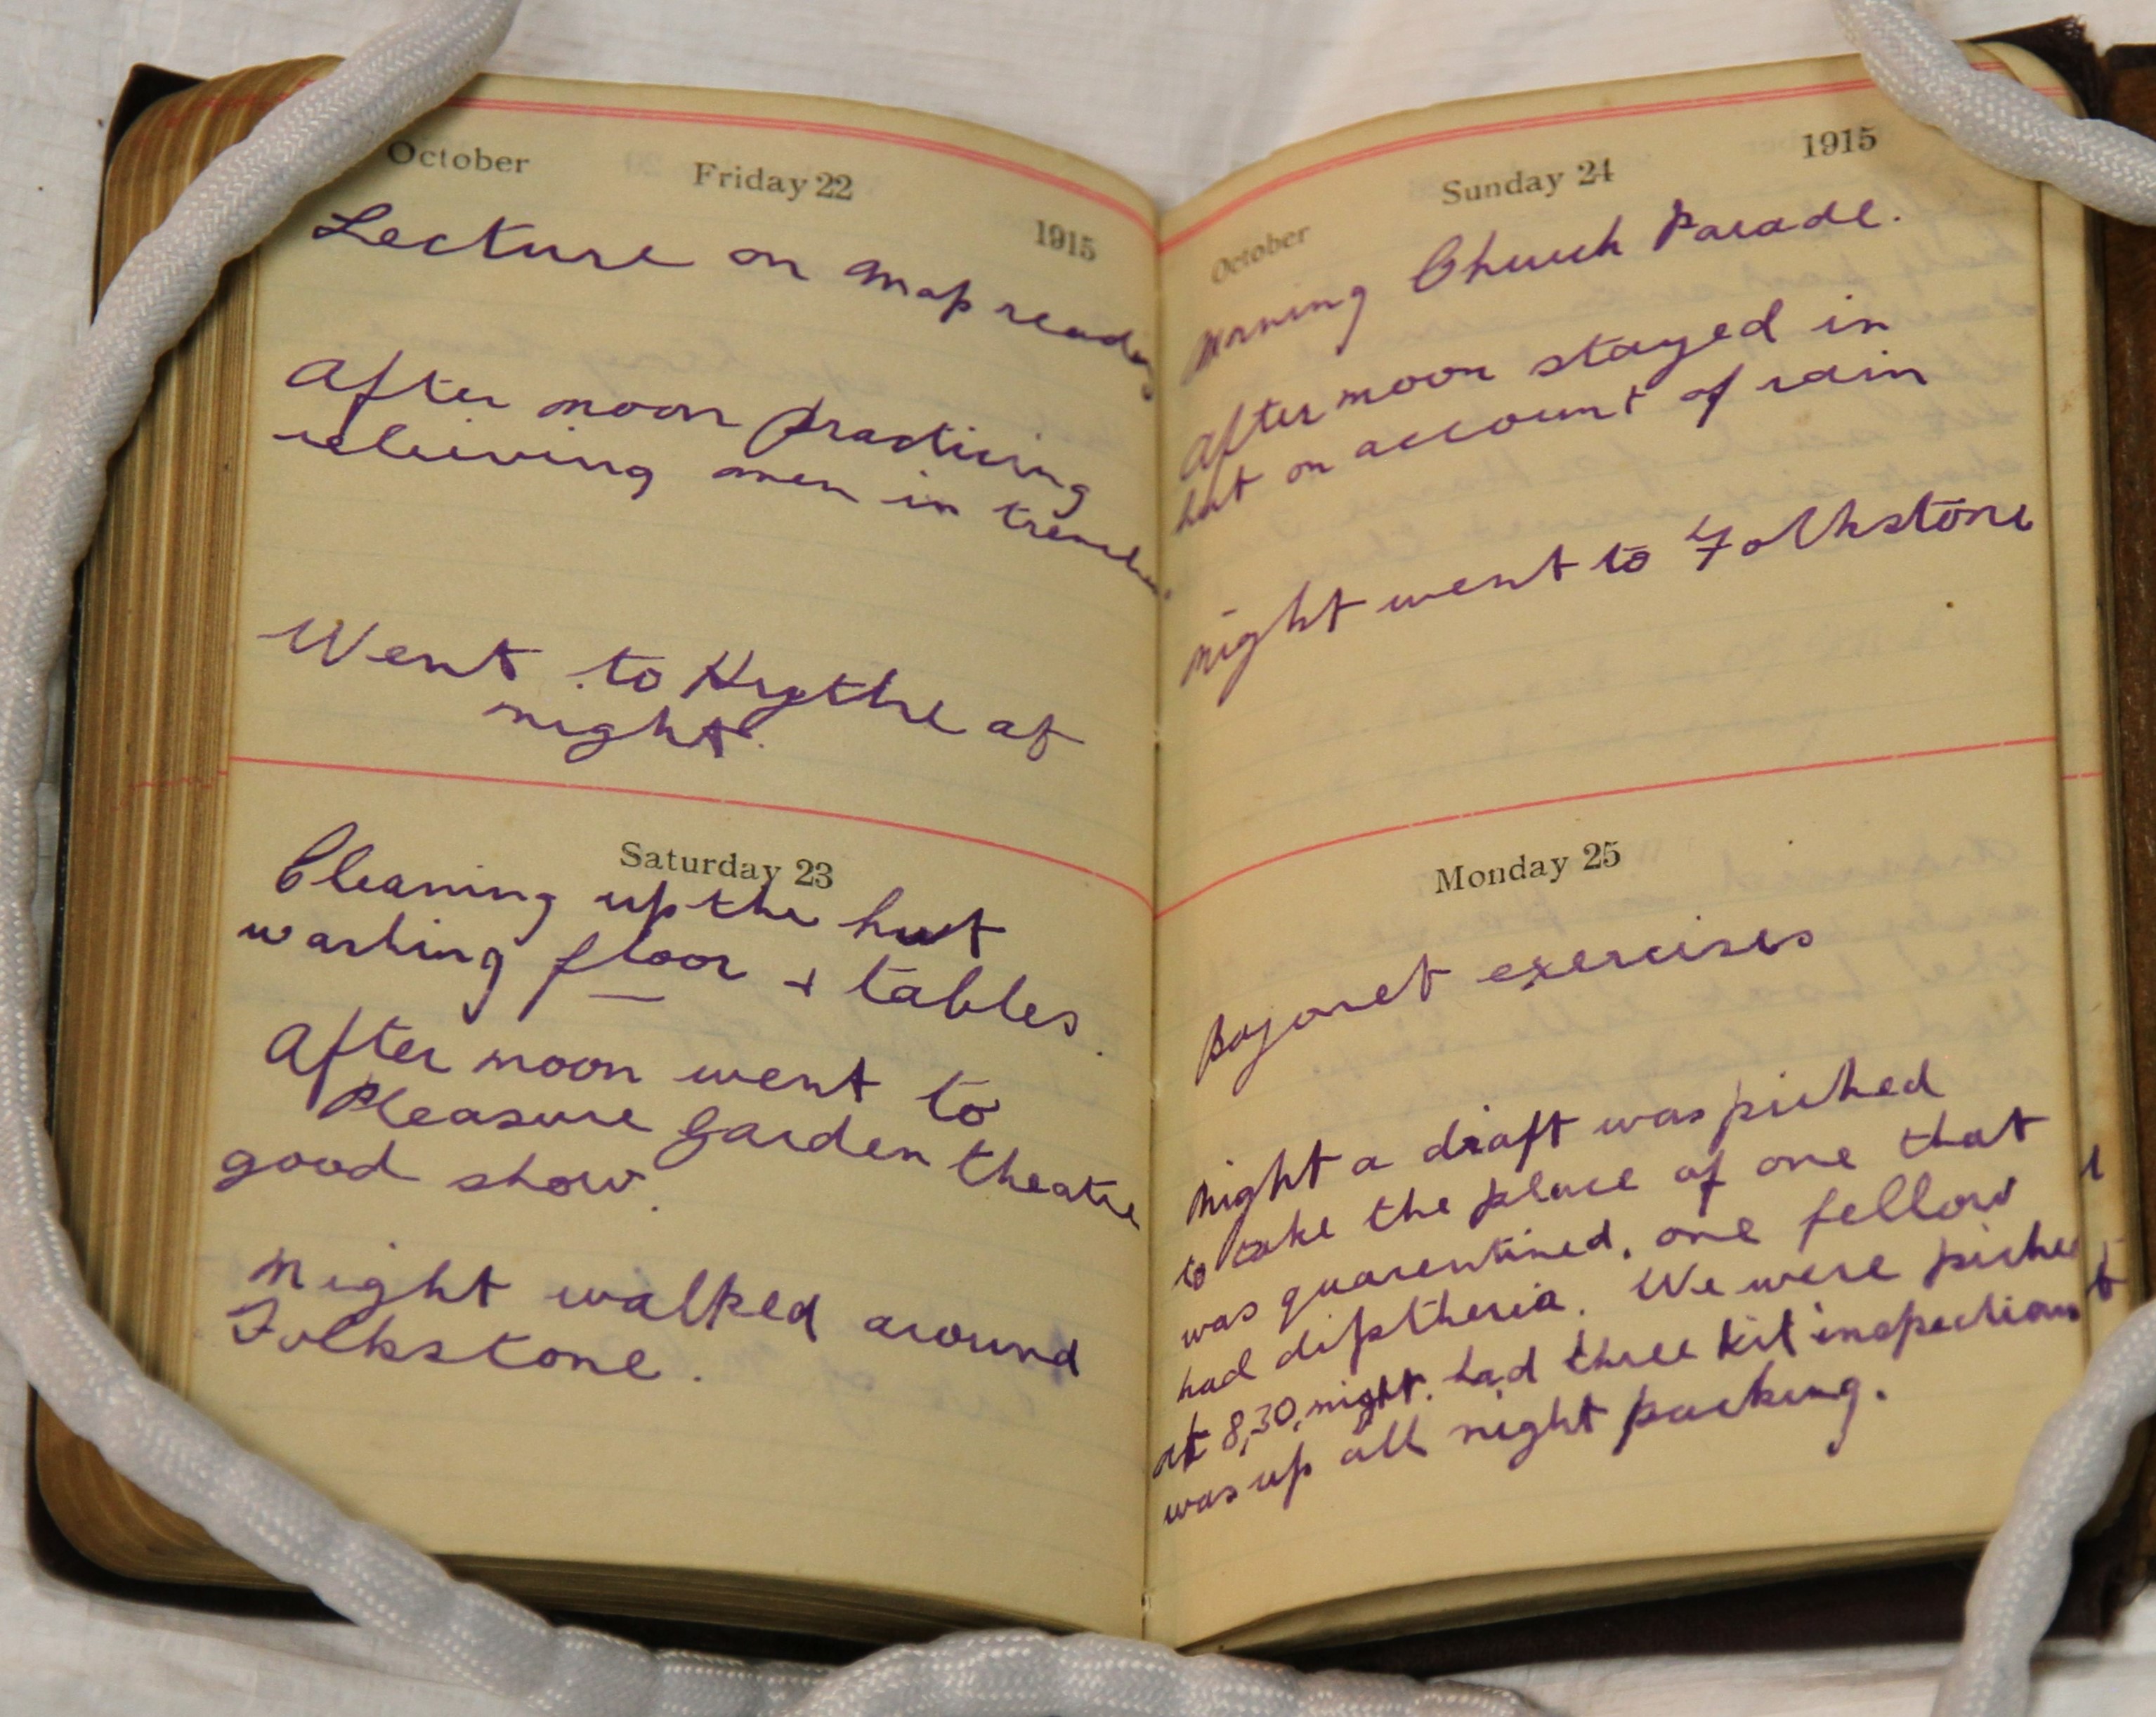 October Friday 22 1915
Lecture on map reading
After noon practicing
releiving men in trenches.
Went to Hythe at
night.
Saturday 23
Cleaning up the hut
washing floor + tables.
After noon went to
Pleasure Garden theatre
good show.
Night walked around
Folkstone.
October Sunday 24 1915
Morning Church Parade.
After noon stayed in
hut on account of rain
Night went to Folkstone
Monday 25
Bayonet exercises
Night a draft was picked
to take the place of one that
was quarentined, one fellow
had diptheria. We were picked
at 8,30, night. had three kit inspections
was up all night packing.